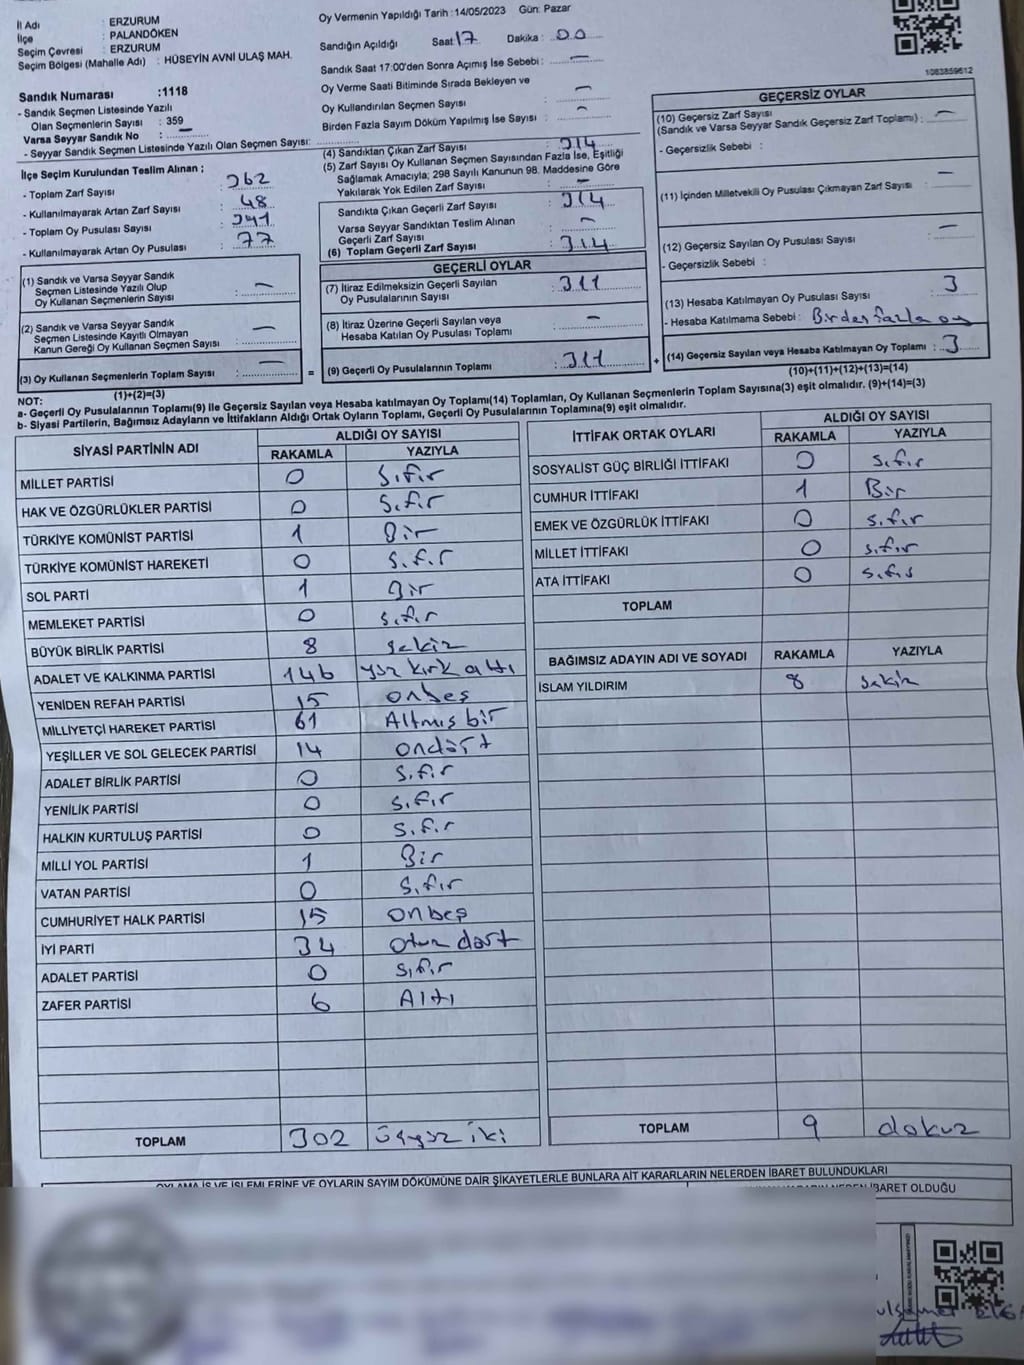 İl Adı : ERZURUM
İlçe : PALANDÖKEN
Seçim Çevresi : ERZURUM
Seçim Bölgesi (Mahalle Adı) : HÜSEYİN AVNİ ULAŞ MAH.
Sandık Numarası :1118
- Sandık Seçmen Listesinde Yazılı
Olan Seçmenlerin Sayısı : 359
Varsa Seyyar Sandık No : —
- Seyyar Sandık Seçmen Listesinde Yazılı Olan Seçmen Sayısı:
İlçe Seçim Kurulundan Teslim Alınan ;
- Toplam Zarf Sayısı : 362
- Kullanılmayarak Artan Zarf Sayısı : 48
- Toplam Oy Pusulası Sayısı
- Kullanılmayarak Artan Oy Pusulası : 77
(1) Sandık ve Varsa Seyyar Sandık
Seçmen Listesinde Yazılı Olup
Oy Kullanan Seçmenlerin Sayısı : —
(2) Sandık ve Varsa Seyyar Sandık
Seçmen Listesinde Kayıtlı Olmayan
Kanun Gereği Oy Kullanan Seçmen Sayısı : —
(3) Oy Kullanan Seçmenlerin Toplam Sayısı : —
(1)+(2)=(3)
Oy Vermenin Yapıldığı Tarih :14/05/2023 Gün: Pazar
Sandığın Açıldığı Saat 17 Dakika : 00
Sandık Saat 17:00'den Sonra Açımış İse Sebebi : —
Oy Verme Saati Bitiminde Sırada Bekleyen ve
Oy Kullandırılan Seçmen Sayısı : —
Birden Fazla Sayım Döküm Yapılmış İse Sayısı : —
(4) Sandıktan Çıkan Zarf Sayısı : 314
(5) Zarf Sayısı Oy Kullanan Seçmen Sayısından Fazla İse, Eşitliği
Sağlamak Amacıyla; 298 Sayılı Kanunun 98. Maddesine Göre
Yakılarak Yok Edilen Zarf Sayısı : —
Sandıkta Çıkan Geçerli Zarf Sayısı : 314
Varsa Seyyar Sandıktan Teslim Alınan
Geçerli Zarf Sayısı : —
(6) Toplam Geçerli Zarf Sayısı : 314
GEÇERLİ OYLAR
(7) İtiraz Edilmeksizin Geçerli Sayılan
Oy Pusulalarının Sayısı : 311
(8) İtiraz Üzerine Geçerli Sayılan veya
Hesaba Katılan Oy Pusulası Toplamı : —
= (9) Geçerli Oy Pusulalarının Toplamı : 311 +
1083859612
GEÇERSİZ OYLAR
(10) Geçersiz Zarf Sayısı
(Sandık ve Varsa Seyyar Sandık Geçersiz Zarf Toplamı) : —
- Geçersizlik Sebebi :
(11) İçinden Milletvekili Oy Pusulası Çıkmayan Zarf Sayısı : —
(12) Geçersiz Sayılan Oy Pusulası Sayısı : —
- Geçersizlik Sebebi :
(13) Hesaba Katılmayan Oy Pusulası Sayısı : 3
- Hesaba Katılmama Sebebi : Birden fazla oy
(14) Geçersiz Sayılan veya Hesaba Katılmayan Oy Toplamı : 3
(10)+(11)+(12)+(13)=(14)
NOT:
a- Geçerli Oy Pusulalarının Toplamı(9) ile Geçersiz Sayılan veya Hesaba katılmayan Oy Toplamı(14) Toplamları, Oy Kullanan Seçmenlerin Toplam Sayısına(3) eşit olmalıdır. (9)+(14)=(3)
b- Siyasi Partilerin, Bağımsız Adayların ve İttifakların Aldığı Ortak Oyların Toplamı, Geçerli Oy Pusulalarının Toplamına(9) eşit olmalıdır.
SİYASİ PARTİNİN ADI ALDIĞI OY SAYISI
RAKAMLA YAZIYLA
MİLLET PARTİSİ 0 Sıfır
HAK VE ÖZGÜRLÜKLER PARTİSİ 0 Sıfır
TÜRKİYE KOMÜNİST PARTİSİ 1 Bir
TÜRKİYE KOMÜNİST HAREKETİ 0 Sıfır
SOL PARTİ 1 Bir
MEMLEKET PARTİSİ 0 Sıfır
BÜYÜK BİRLİK PARTİSİ 8 sekiz
ADALET VE KALKINMA PARTİSİ 146 yüz kırk altı
YENİDEN REFAH PARTİSİ 15 onbeş
MİLLİYETÇİ HAREKET PARTİSİ 61 Altmış bir
YEŞİLLER VE SOL GELECEK PARTİSİ 14 ondört
ADALET BİRLİK PARTİSİ 0 Sıfır
YENİLİK PARTİSİ 0 Sıfır
HALKIN KURTULUŞ PARTİSİ 0 Sıfır
MİLLİ YOL PARTİSİ 1 Bir
VATAN PARTİSİ 0 Sıfır
CUMHURİYET HALK PARTİSİ 15 onbeş
İYİ PARTİ 34 otuz dört
ADALET PARTİSİ 0 Sıfır
ZAFER PARTİSİ 6 Altı
TOPLAM 302 üçyüz iki
İTTİFAK ORTAK OYLARI ALDIĞI OY SAYISI
RAKAMLA YAZIYLA
SOSYALİST GÜÇ BİRLİĞİ İTTİFAKI 0 Sıfır
CUMHUR İTTİFAKI 1 Bir
EMEK VE ÖZGÜRLÜK İTTİFAKI 0 sıfır
MİLLET İTTİFAKI 0 sıfır
ATA İTTİFAKI 0 sıfır
TOPLAM
BAĞIMSIZ ADAYIN ADI VE SOYADI RAKAMLA YAZIYLA
İSLAM YILDIRIM 8 sekiz
TOPLAM 9 dokuz
OYLAMA İŞ VE İŞLEMLERİNE VE OYLARIN SAYIM DÖKÜMÜNE DAİR ŞİKAYETLERLE BUNLARA AİT KARARLARIN NELERDEN İBARET BULUNDUKLARI
İBARET OLDUĞU